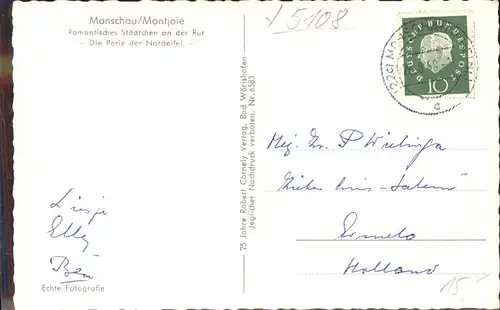 Monschau/Montjoie
Romantisches Städtchen an der Rur
- Die Perle der Nordeifel -
5108
DEUTSCHE BUNDESPOST
10
25 Jahre Robert Cornely Verlag, Bad Wörishofen
Jeglicher Nachdruck verboten. Nr. 6383
P Wielinga
Salem"
Ermelo
Holland
Elly
Ben
Echte Fotografie
15,-